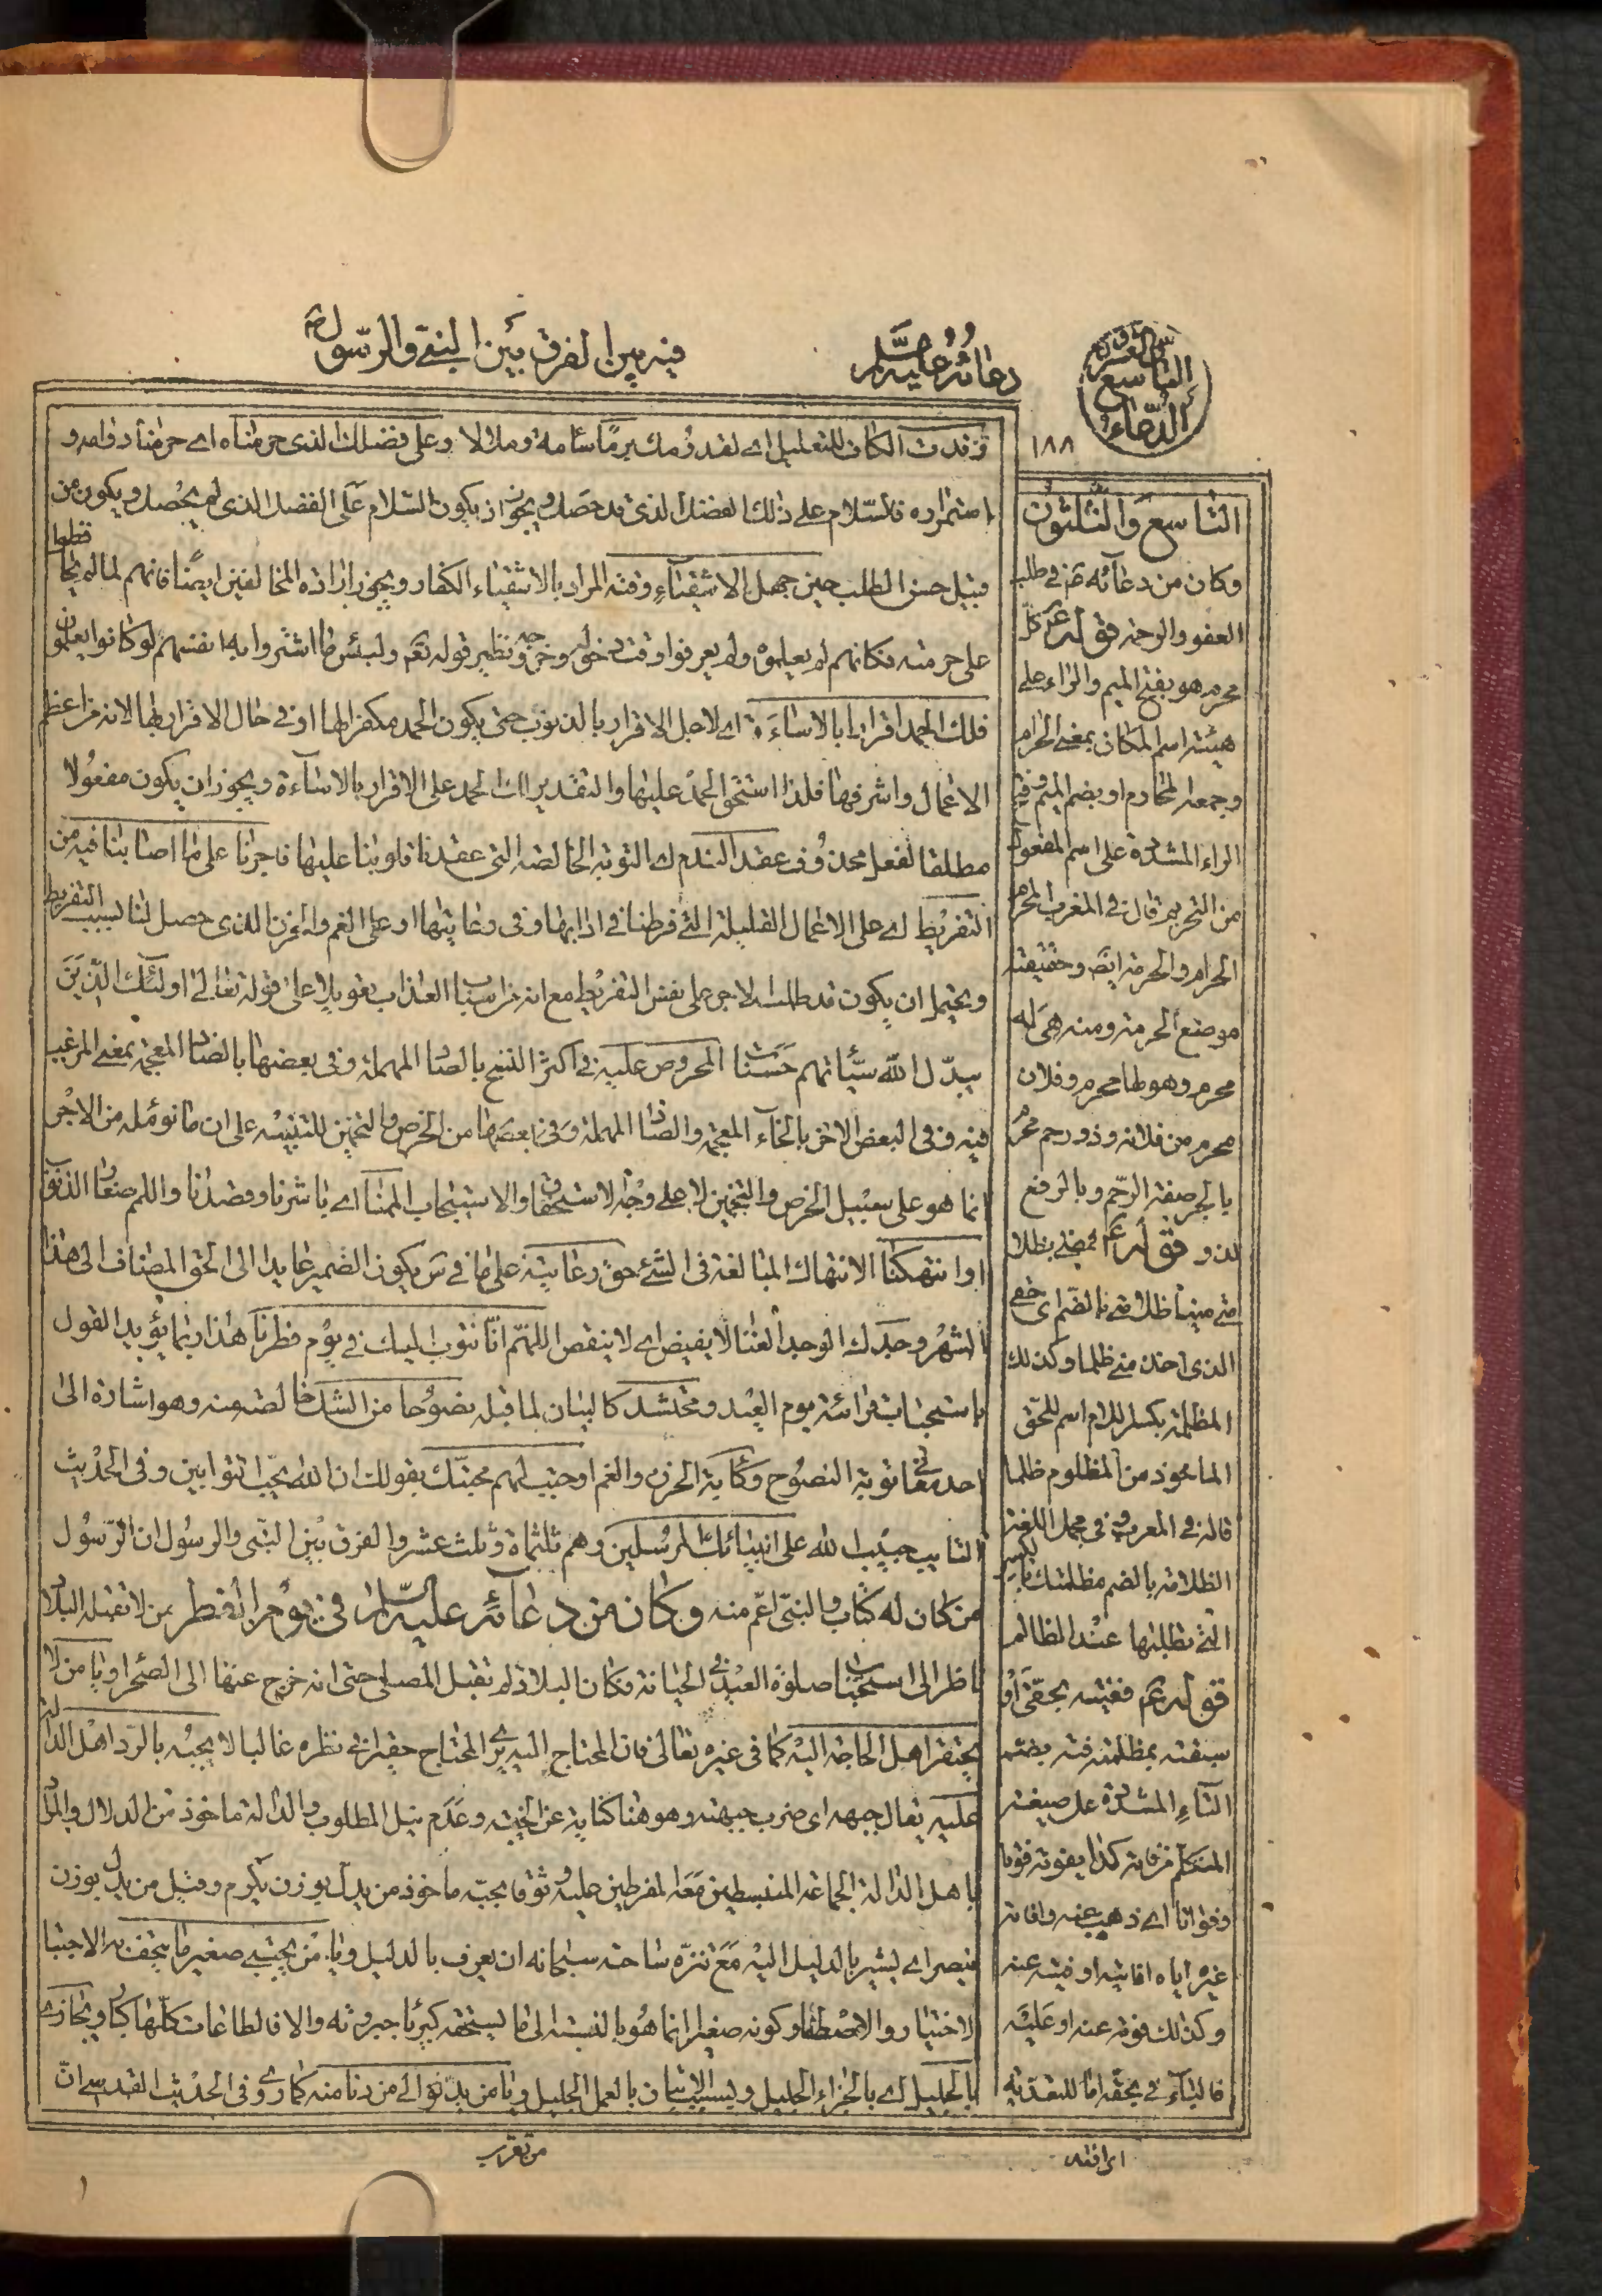 فيه بين الفرق بين النبي والرسول ص
دعائه عليه السلام
الدعاء التاسع
١٨٨
وعلى فضلك الذي حرمناه اي حرمنا دوامه و
استمراره فالسلام على ذلك الفضل الذي قد حصل ويجوز ان يكون السلام على الفضل الذي لم يحصل ويكون من
قبيل حسن الطلب حين جهل الاشقياء وقته المراد بالاشقياء الكفار ويجوز ارادة المخالفين ايضا فانهم لما لم
على حرمته فكانهم لم يعلموه ولم يعرفوا وقت دخوله وخروجه ونظير قوله تعم ولبئس ما اشتروا به انفسهم لو كانوا يعلمون
فلك الحمد اقرارا بالاساءة اي لاجل الاقرار بالذنوب حتى يكون الحمد مكفرا لها او في حال الاقرار بها لانه من اعظم
الاعمال واشرفها فلذا استحق الحمد عليها والتقدير لك الحمد على الاقرار بالاساءة ويجوز ان يكون مفعولا
مطلقا لفعل محذوف عقد الندم اي التوبة الخالصة التي عقدنا قلوبنا عليها فاجرنا على ما اصابنا فيه من
التفريط اي على الاعمال القليلة التي فرطنا في ادابها وفي رعايتها او على الغم والحزن الذي حصل لنا بسبب التفريط
ويحتمل ان يكون قد طلب الاجر على نفس التفريط مع انه من اسباب العذاب تعويلا على قوله تعالى اولئك الذين
يبدل الله سيئاتهم حسنات المحروص عليه في اكثر النسخ بالصاد المهملة وفي بعضها بالضاد المعجمة بمعنى المرغب
فيه وفي البعض الاخر بالخاء المعجمة والصاد المهملة وفي بعضها من الخرص والتخمين للتنبيه على ان ما نؤمله من الاجر
انما هو على سبيل الخرص والتخمين لا على وجه الاستحقاق والاستيجاب الممنا اي باشرنا وقصدنا واللمم صغار الذنوب
او انتهكنا الانتهاك المبالغة في الشئ حق رعايته على ما في س يكون الضمير عايدا الى الحق المضاف الى هذا
الشهر وجدك الوجد الغنا لا يغيض اي لا ينقص اللهم انا نتوب اليك في يوم فطرنا هذا ربما يؤيد القول
باستحباب قرائته يوم العيد ومحتشد كالبيان لما قبله نصوحا من الشك خالصة منه وهو اشارة الى
احد معاني توبة النصوح وكابة الحزن والغم اوجبت لهم محبتك بقولك ان الله يحب التوابين وفي الحديث
التايب حبيب الله على انبيائك المرسلين وهم ثلثمائة وثلث عشر والفرق بين النبي والرسول ان الرسول
من كان له كتاب والنبي اعم منه وكان من دعائه عليه السلام في يوم الفطر من لا تقبله البلاد
ناظر الى استحباب صلوة العيد في الجبانة فكان البلاد لم تقبل المصلي حتى انه خرج عنها الى الصحراء ويا من لا
يحتقر اهل الحاجة اليه كما في غيره تعالى فان المحتاج اليه يرى المحتاج حقيرا في نظره غالبا لا يجبه بالرد اهل الدالة
عليه يقال جبهه اي ضرب جبهته وهو هنا كناية عن الخيبة وعدم نيل المطلوب والدالة ماخوذ من الدلال والمراد
باهل الدالة الجماعة المنبسطين معه المفرطين عليه وثوقا بحبه ماخوذ من يدل بوزن يكرم وقيل من يدل بوزن
ينصر اي يشير بالدليل اليه مع تنزه ساحته سبحانه ان يعرف بالدليل ويا من يجتبي صغير ما يتحف به الاجتباء
الاختيار والاصطفاء وكونه صغيرا انما هو بالنسبة الى ما يستحقه كبرياء جبروته والا فالطاعات كلها كبار ويجازي
بالجليل اي بالجزاء الجليل وليس الاتيان بالعمل الجليل ويا من يدنو الى من دنا منه كما روي في الحديث القدسي ان
من تقرب
التاسع والثلثون
وكان من دعائه ع في طلب
العفو والرحمة قوله ع كل
محرم هو بفتح الميم والراء على
هيئة اسم المكان بمعنى الحرام
وجمعه المحارم او بضم الميم وفتح
الراء المشددة على اسم المفعول
من التحريم قال في المغرب المحرم
الحرام والحرمة ايضا وحقيقته
موضع الحرمة ومنه هي له
محرم وهو لها محرم وفلان
محرم من فلانة وذو رحم محرم
بالجر صفة الرحم وبالرفع
لذو قوله ع فمضى بظلا
متي ميتا ظلامتي بالضم اي حقي
الذي اخذ مني ظلما وكذلك
المظلمة بكسر اللام اسم للحق
الماخوذ من المظلوم ظلما
قاله في المعرب وفي مجمل اللغة
الظلامة بالضم مظلمتك بالكسر
التي تطلبها عند الظالم
قوله ع ففته بحقه او
سبقته بمظلمته فته بضم
التاء المشددة على صيغة
المتكلم من فاته كذا يفوته فوتا
وفواتا اي ذهب عنه وافاته
غيره اياه افاتية او فيته عنه
وكذلك فوته عنه او عليه
فالباء في بحقه اما للتعدية
اي افته